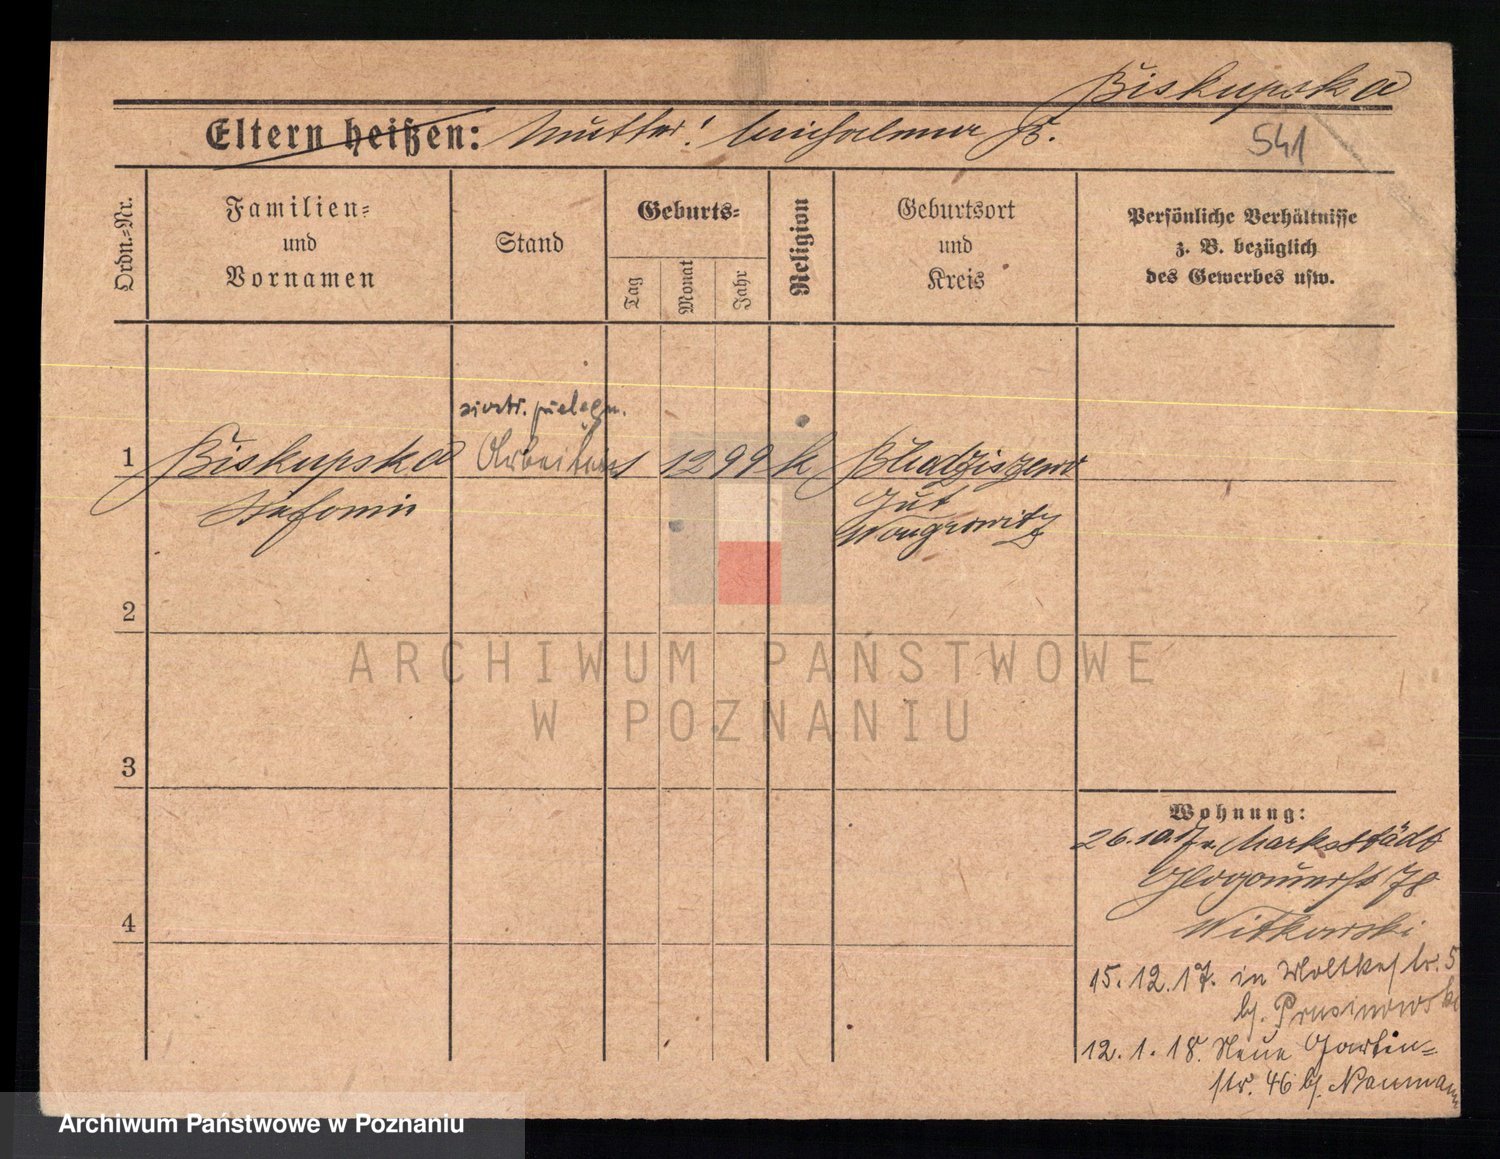 Biskupska
Eltern heißen: Mutter! Michalina B.
541
Ordn.-Nr.
Familien-
und
Vornamen
Stand
Geburts-
Tag
Monat
Jahr
Religion
Geburtsort
und
Kreis
Persönliche Verhältnisse
z. B. bezüglich
des Gewerbes usw.
1 Biskupska Arbeiterin 1 12 99 k
Stefania Gut
Wongrowitz
2
3
4
Wohnung:
26.10.17 v. Markstädt
Glogauerst 78
Witkowski
15.12.17. in Moltkestr. 5
bj. Prusinowski
12.1.18. Neue Garten-
str. 46 bj. Naumann
ARCHIWUM PAŃSTWOWE
W POZNANIU
Archiwum Państwowe w Poznaniu